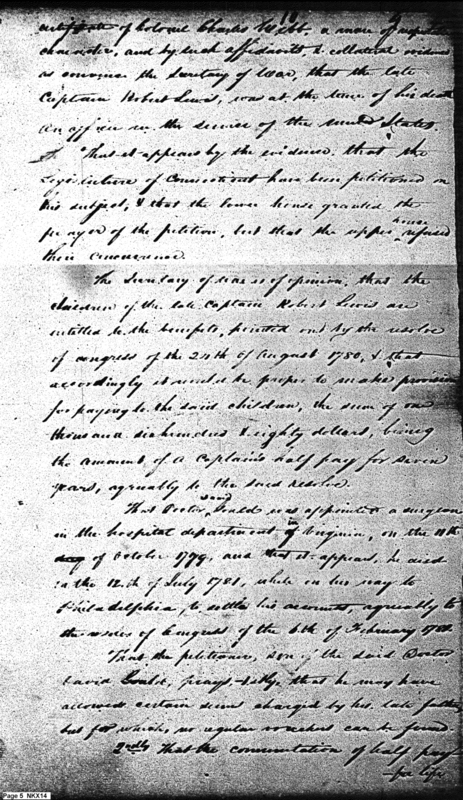 certificate of Colonel Charles Webb, a man of
character, and by such affidavits, & collateral evidence
as convince the Secretary of War, that the late
Captain Robert Lewis, was at the time of his death
an officer in the service of the United States.
That it appears by the evidence, that the
Legislature of Connecticut have been petitioned on
this subject, & that the lower house granted the
prayer of the petition, but that the upper house refused
their concurrence.
The Secretary of war is of opinion, that the
children of the late Captain Robert Lewis are
intitled to the benefits, pointed out by the resolve
of congress of the 24th of August 1780, & that
accordingly it would be proper to make provision
for paying to the said children, the sum of one
thousand six hundred & eighty dollars, being
the amount of a Captain's half pay for seven
years, agreeably to the said resolve.
That Doctor said Gould was appointed a surgeon
in the hospital department in Virginia, on the 11th
day of October 1779, and that it appears, he died
the 12th of July 1781, while on his way to
Philadelphia, to settle his accounts, agreeably to
the resolve of Congress of the 6th of February 1781.
That the petitioner, son of the said Doctor
David Gould, prays 1stly, that he may have
allowed certain sums charged by his late father
but for which no regular vouchers can be found.
2ndly That the commutation of half pay
for life
Page 5 NKX14